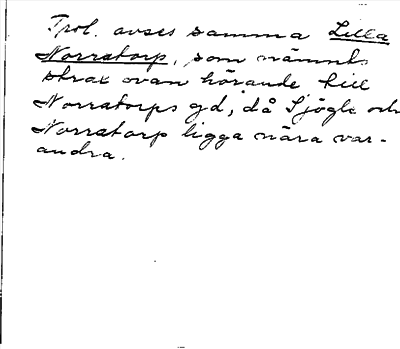 Trol. avses samma Lilla
Norratorp, som nämnts
strax ovan hörande till
Norratorps gd, då Sjögle och
Norratorp ligga nära var-
andra.